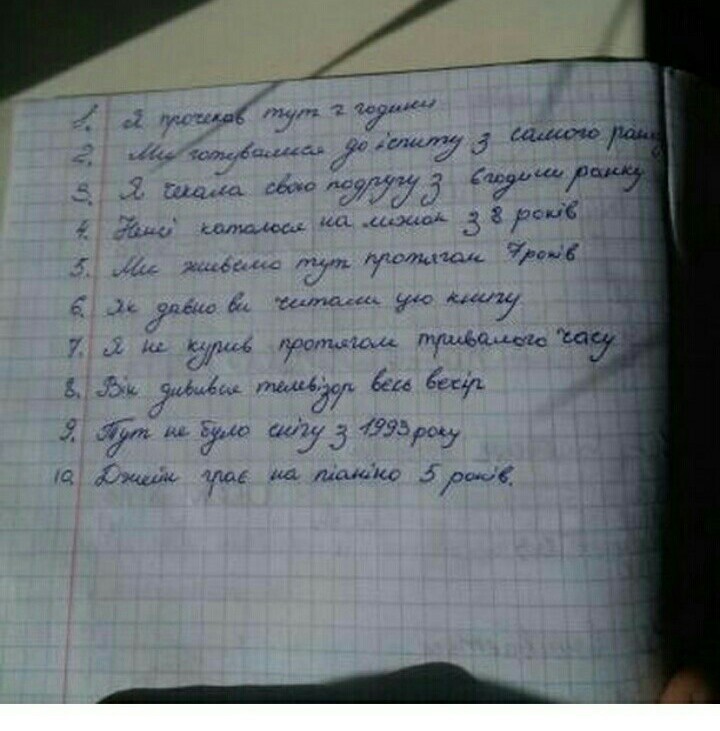 1. Я прочекав тут 2 години
2. Ми готувалися до іспиту з самого ранку
3. Я чекала свою подругу з 6 години ранку
4. Ненсі каталося на лижах з 8 років
5. Ми живемо тут протягом 7 років
6. Як давно ви читали цю книгу
7. Я не курив протягом тривалого часу
8. Він дивився телевізор весь вечір
9. Тут не було снігу з 1993 року
10 Джейн грає на піаніно 5 років.